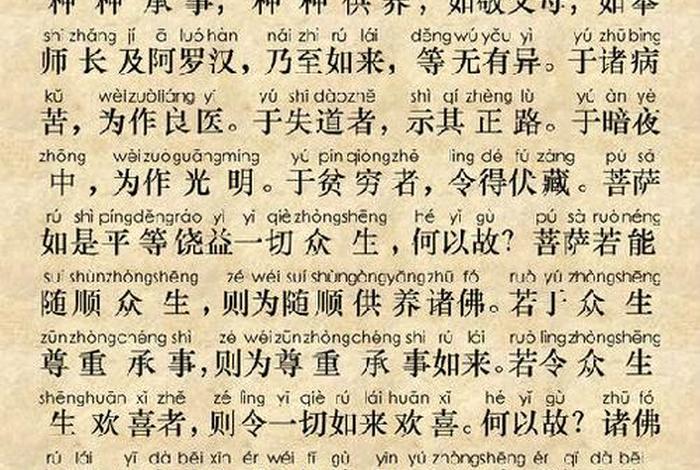 种种承事，种种供养，如敬父母，如奉
shī zhǎng jí ā luó hàn nǎi zhì rú lái děng wú yǒu yì yú zhū bìng
师长及阿罗汉，乃至如来，等无有异。于诸病
kǔ wèi zuò liáng yī yú shī dào zhě shì qí zhèng lù yú àn yè
苦，为作良医。于失道者，示其正路。于暗夜
zhōng wèi zuò guāng míng yú pín qióng zhě lìng dé fú zàng pú sà
中，为作光明。于贫穷者，令得伏藏。菩萨
rú shì píng děng ráo yì yī qiè zhòng shēng hé yǐ gù pú sà ruò néng
如是平等饶益一切众生，何以故？菩萨若能
suí shùn zhòng shēng zé wéi suí shùn gòng yǎng zhū fó ruò yú zhòng shēng
随顺众生，则为随顺供养诸佛。若于众生
zūn zhòng chéng shì zé wéi zūn zhòng chéng shì rú lái ruò lìng zhòng shēng
尊重承事，则为尊重承事如来。若令众生
shēng huān xǐ zhě zé lìng yī qiè rú lái huān xǐ hé yǐ gù zhū fó
生欢喜者，则令一切如来欢喜。何以故？诸佛
rú lái yǐ dà bēi xīn ér wéi tǐ gù yīn yú zhòng shēng ér qǐ dà bēi